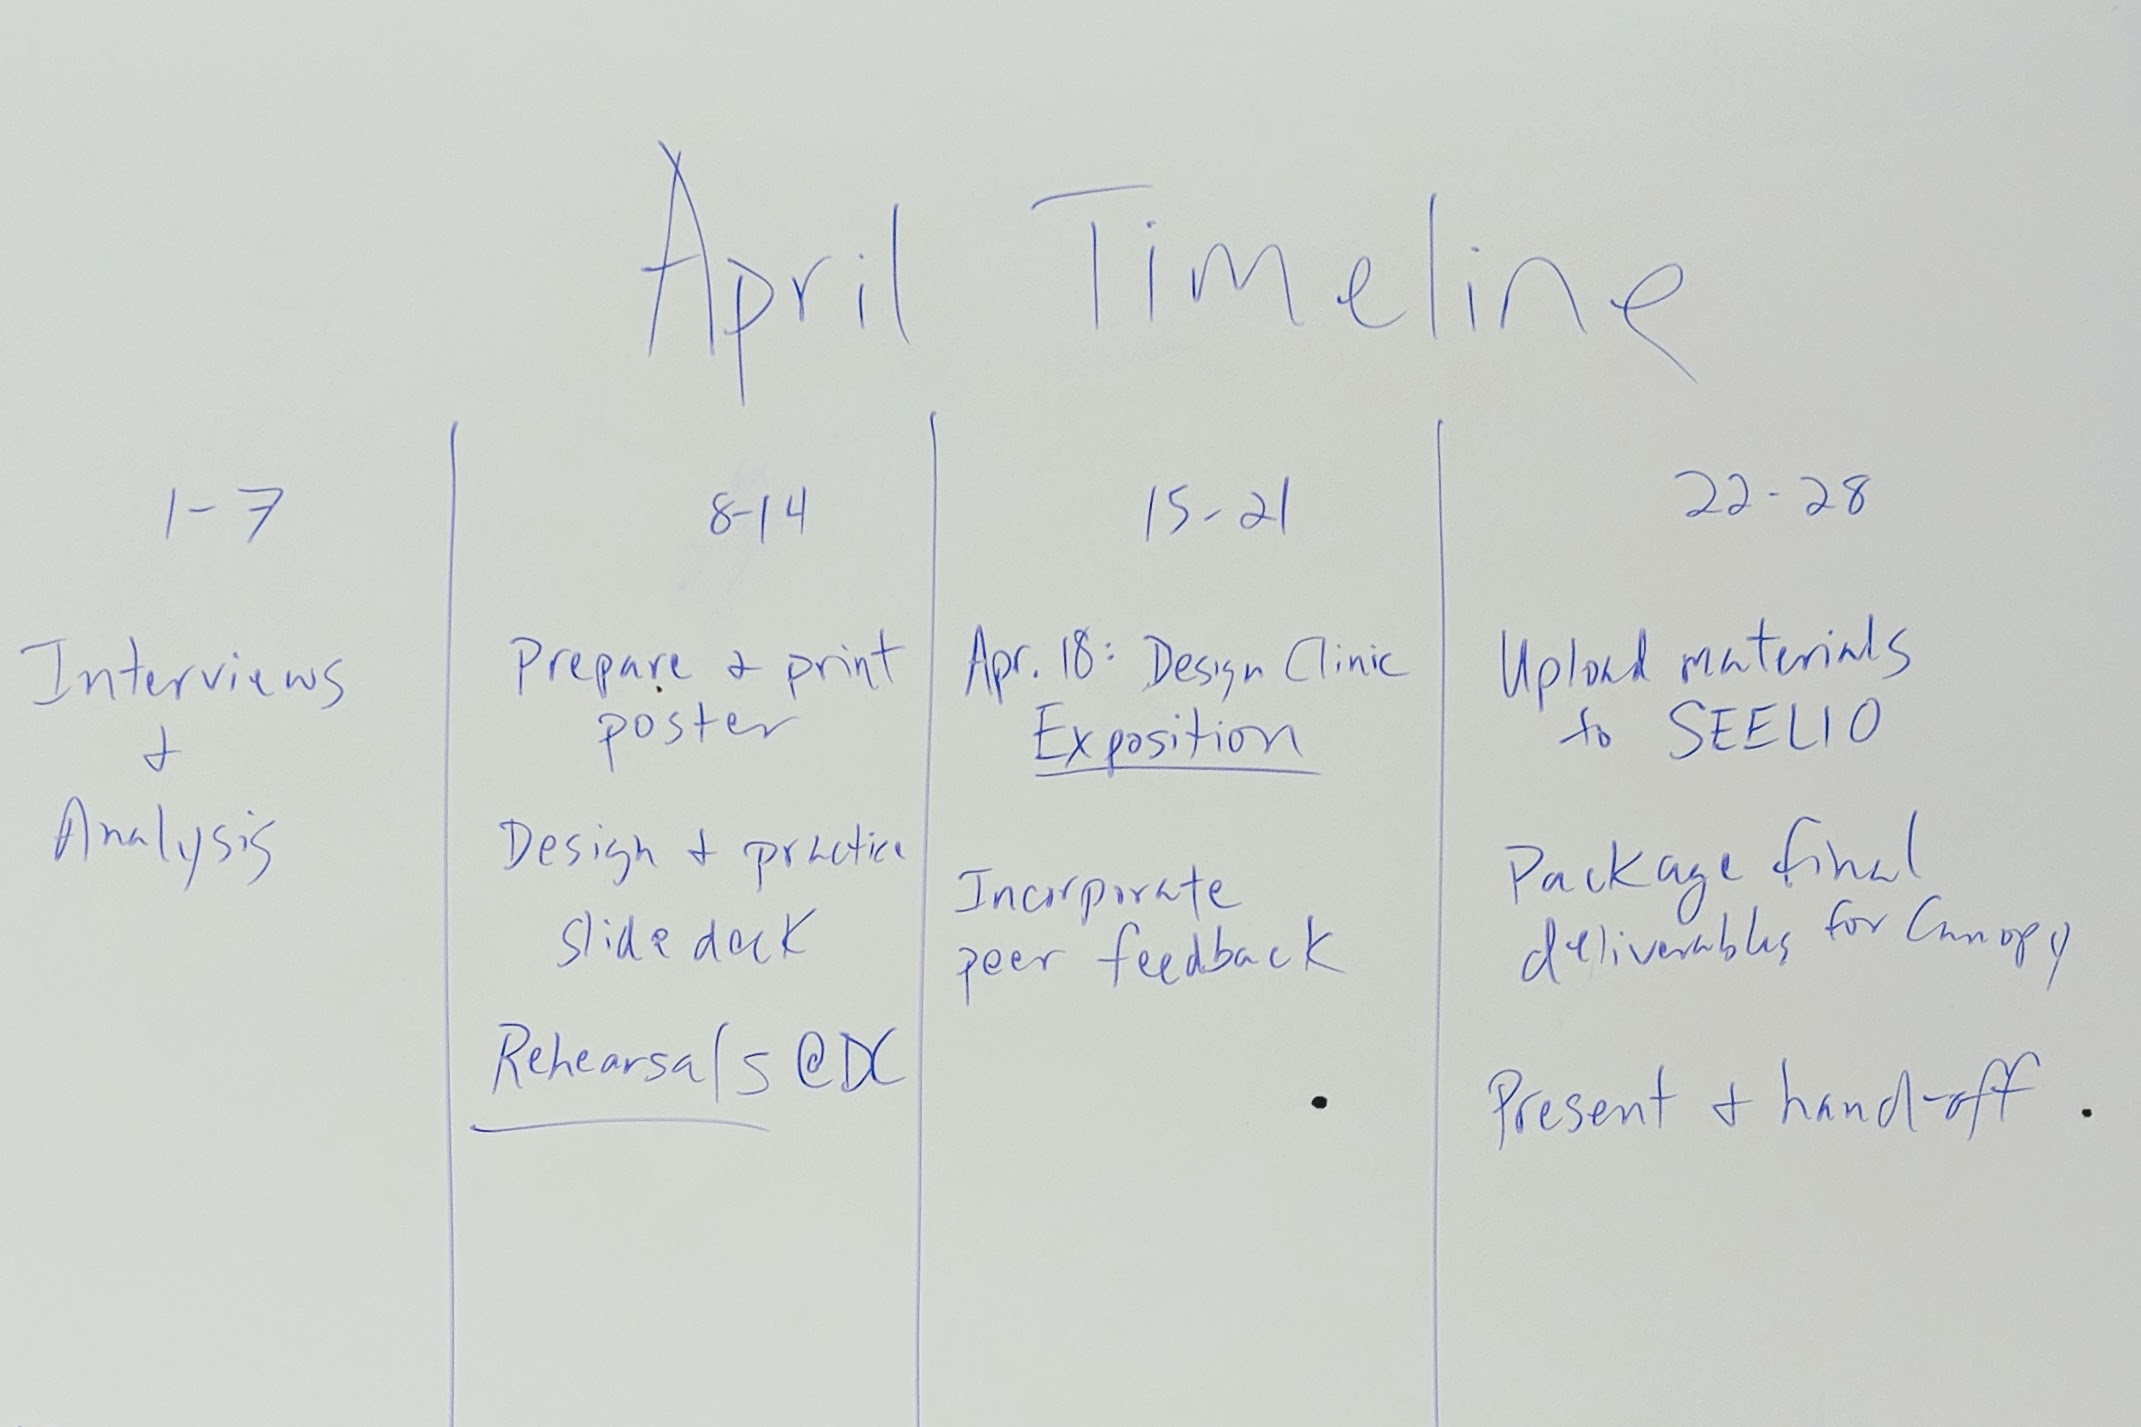 April Timeline
1-7
Interviews
+
Analysis
8-14
Prepare + print
poster
Design + practice
slide deck
Rehearsals @DC
15-21
Apr. 18: Design Clinic
Exposition
Incorporate
peer feedback
22-28
Upload materials
to SEELIO
Package final
deliverables for Canopy
Present + hand-off